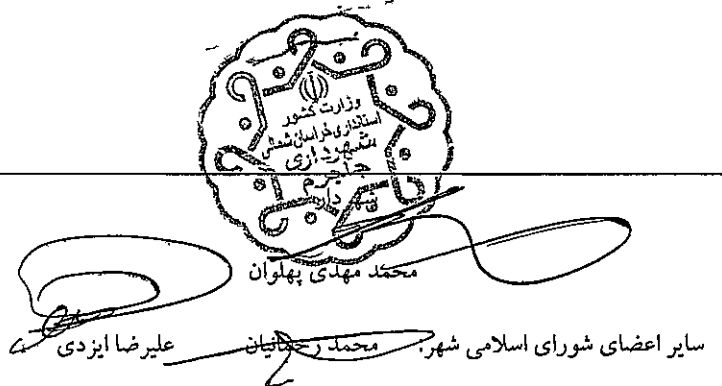 وزارت کشور
استانداری خراسان شمالی
شهرداری
جاجرم
شهردار
محمد مهدی پهلوان
سایر اعضای شورای اسلامی شهر: محمد رحمانیان علیرضا ایزدی